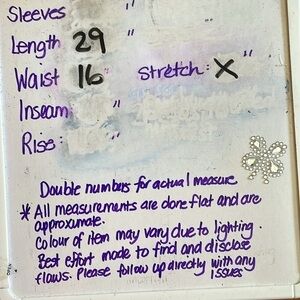 Sleeves "
Length 29 "
Waist 16 " Stretch: X "
Inseam "
Rise: "
Double numbers for actual measure
* All measurements are done flat and are
approximate.
Colour of item may vary due to lighting.
Best effort made to find and disclose
flaws. Please follow up directly with any
issues